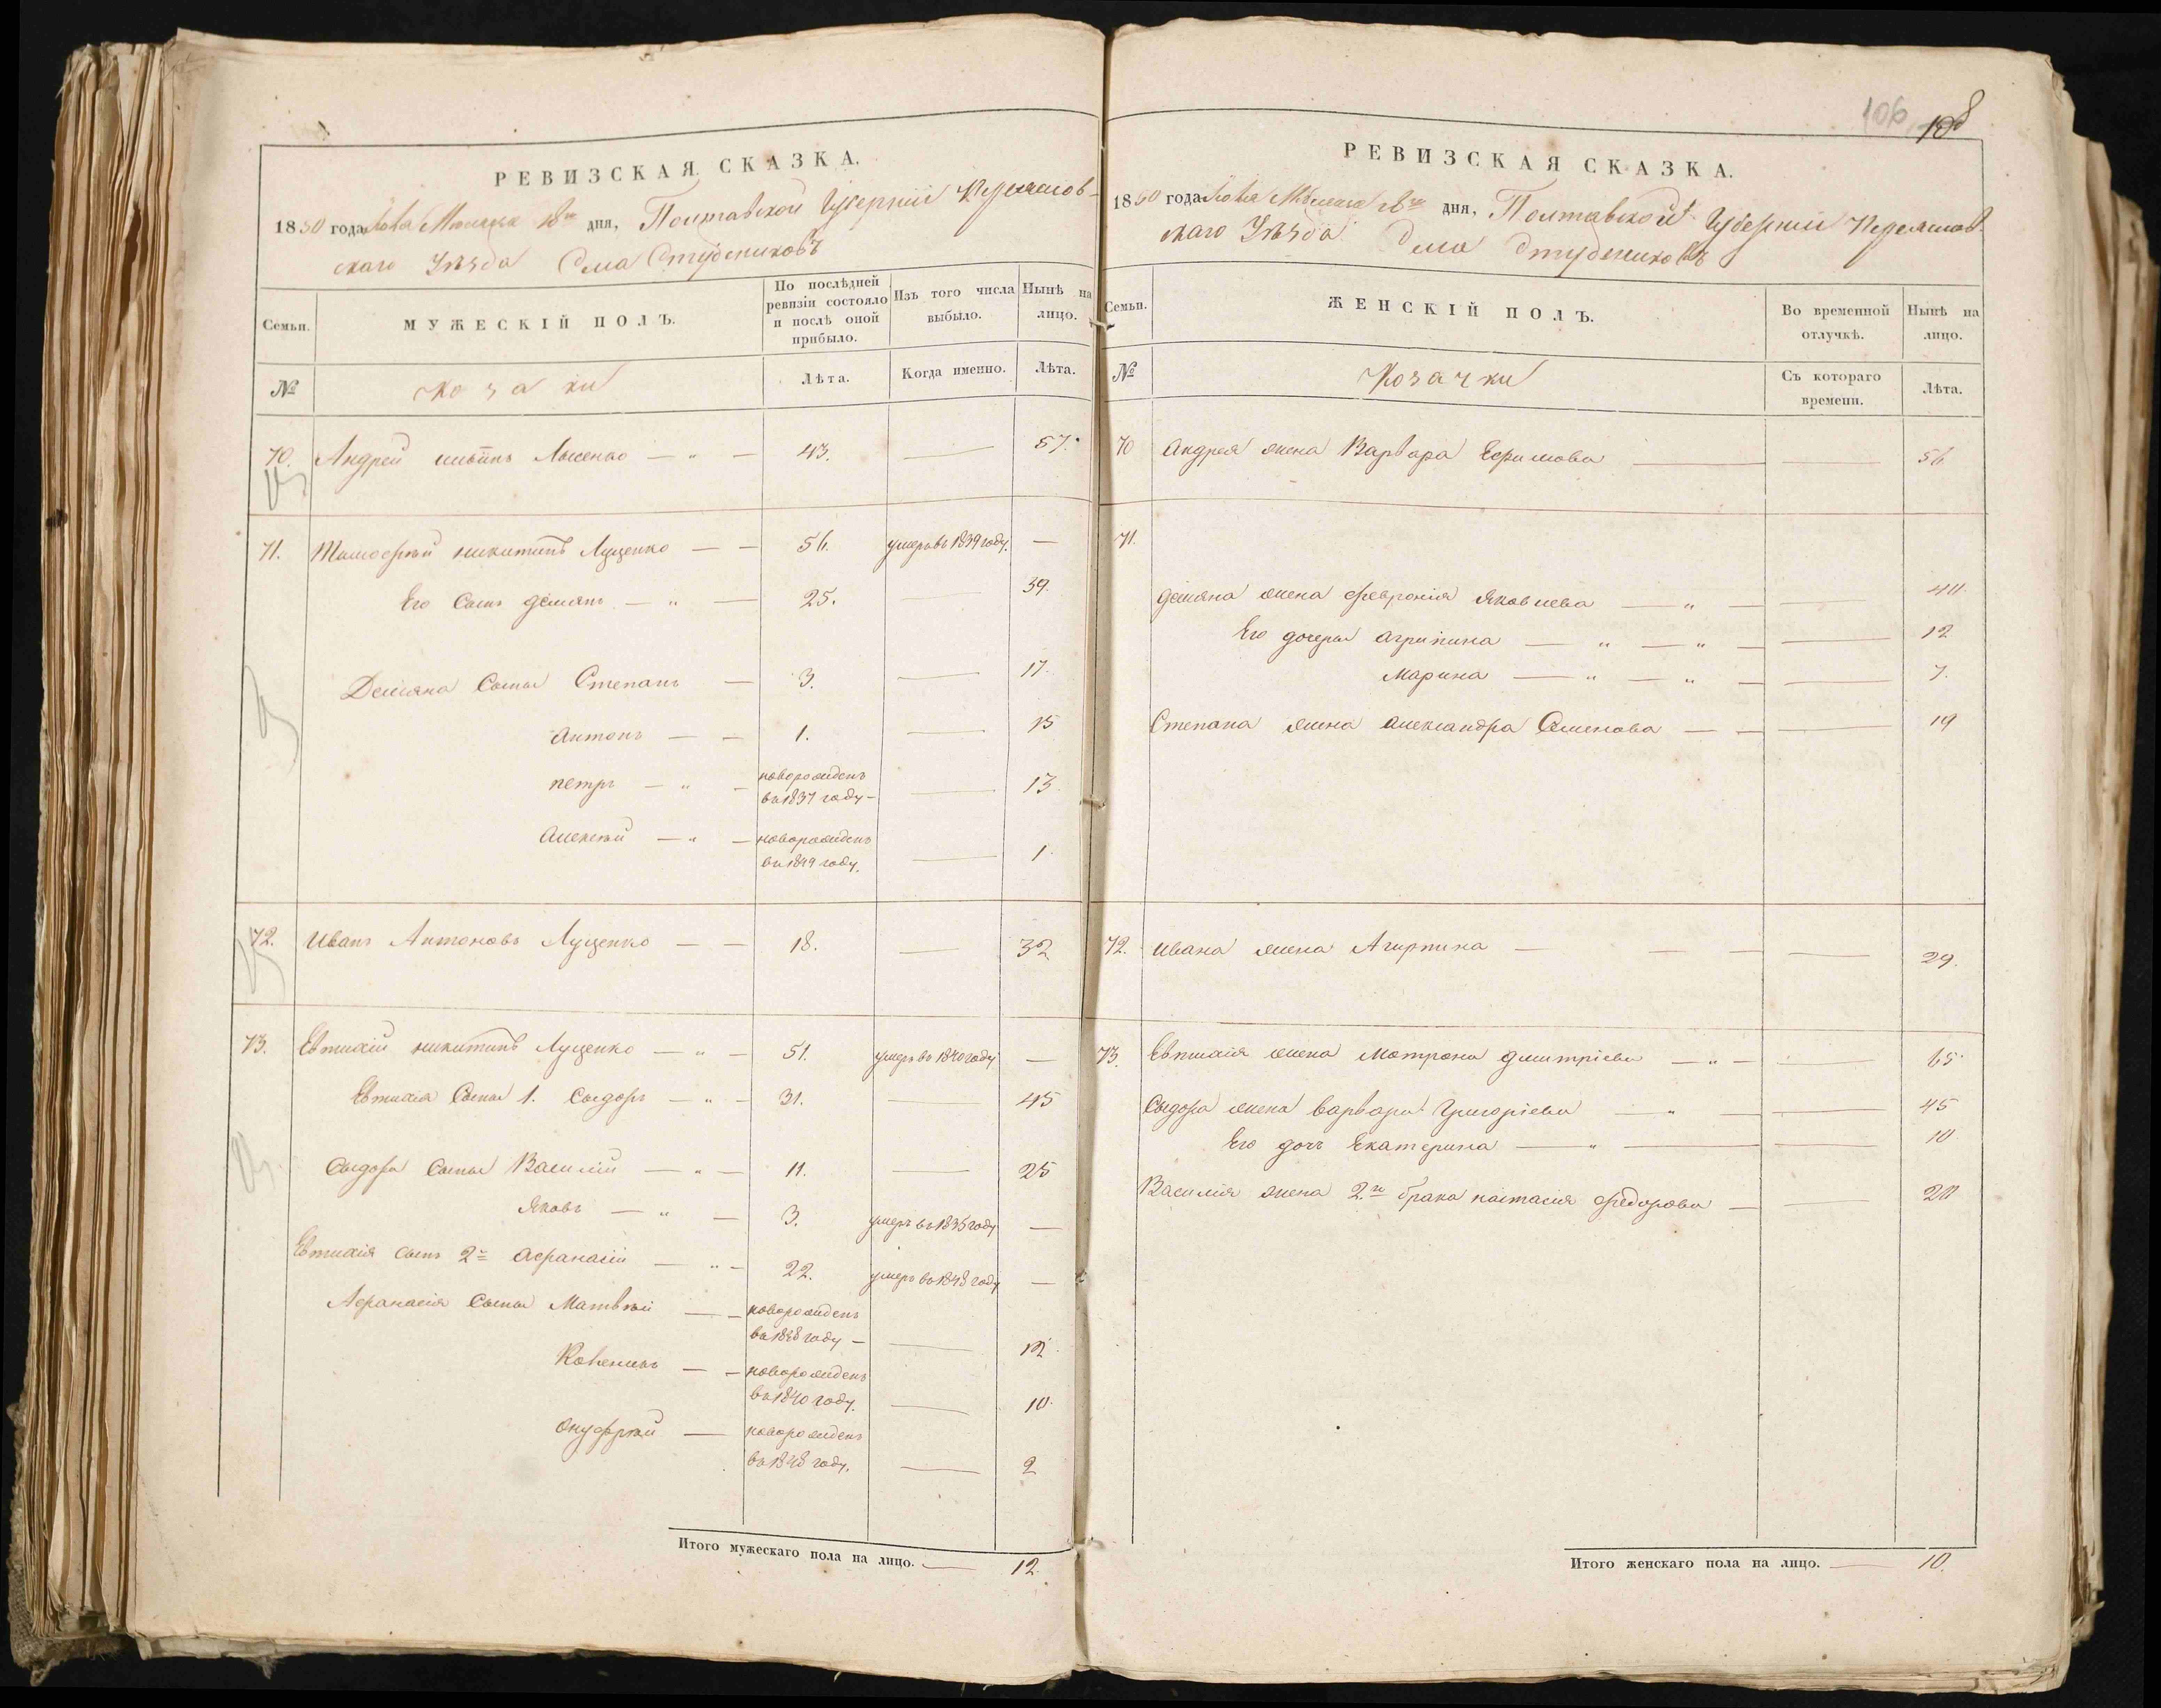 РЕВИЗСКАЯ СКАЗКА.
1850 года Мѣсяца дня, Полтавской Губернии Переяслов-
скаго Уѣзда Села Студениковъ
Семьи.
МУЖЕСКІЙ ПОЛЪ.
По послѣдней ревизіи состояло и послѣ оной прибыло.
Изъ того числа выбыло.
Нынѣ на лицо.
№
Козаки
Лѣта.
Когда именно.
Лѣта.
70. Андрей Лысенко — „ — 43. — 57.
71. Тимофѣй никитинъ Луценко — — 56. умеръ въ 1839 году. —
Его Сынъ демянъ — „ — 25. — 39.
Демяна Сыны Степанъ — 3. — 17.
Антонъ — — 1. — 15
петръ — „ — новорожденъ въ 1837 году — — 13.
Алексѣй — „ — новорожденъ въ 1849 году. — 1.
72. Иванъ Антоновъ Луценко — — 18. — 32
73. Евтихій никитинъ Луценко — „ — 51. умеръ въ 1840 году —
Евтихія Сыны 1. Сыдоръ — „ — 31. — 45
Сыдора Сыны Василій — „ — 11. — 25
Яковъ — „ — 3. умеръ въ 1835 году —
Евтихія сынъ 2й Афанасій — „ — 22. умеръ въ 1848 году —
Афанасія Сыны Матвѣй — — новорожденъ въ 1838 году — — 12.
— — новорожденъ въ 1840 году. — 10.
Онуфрѣй — новорожденъ въ 1848 году. — 2
Итого мужескаго пола на лицо. — 12.
106
108
РЕВИЗСКАЯ СКАЗКА.
1850 года Мѣсяца дня, Полтавской Губерніи Переяслов-
скаго Уѣзда Села Студениковъ
Семьи.
ЖЕНСКІЙ ПОЛЪ.
Во временной отлучкѣ.
Нынѣ на лицо.
№
Козачки
Съ котораго времени.
Лѣта.
70 Андрея жена Варвара Ефимова — — 56
71.
демяна жена феврония Яковлева — „ — — 40.
Его дочеры агрипина — „ — „ — — 12
Марина — „ — „ — — 7.
Степана жена александра Семенова — — — 19
72. Ивана жена — — — — 29.
73. Евтихія жена Мотрона дмитріева — „ — — 65
Сыдора жена варвара Григоріева — „ — — 45
Его дочь Екатерина — „ — — 10
Василія жена 2го брака настасия федорова — — 20
Итого женскаго пола на лицо. — 10.